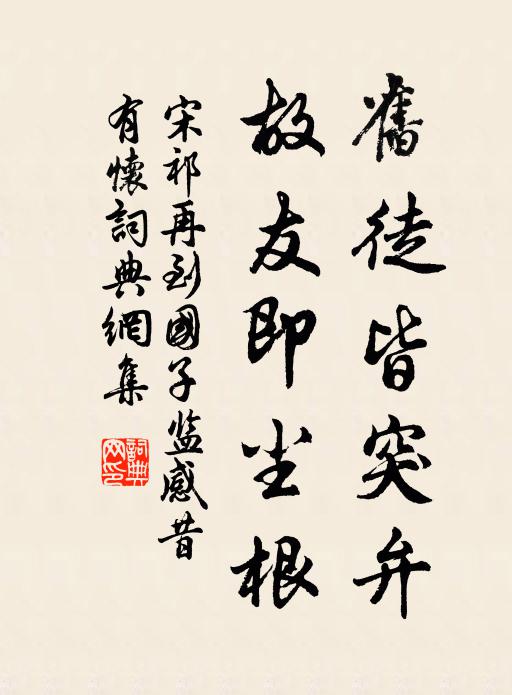 舊徒皆突弁
故友即尘根
宋祁再到國子监感昔
有懷詞典網集
詞典网印